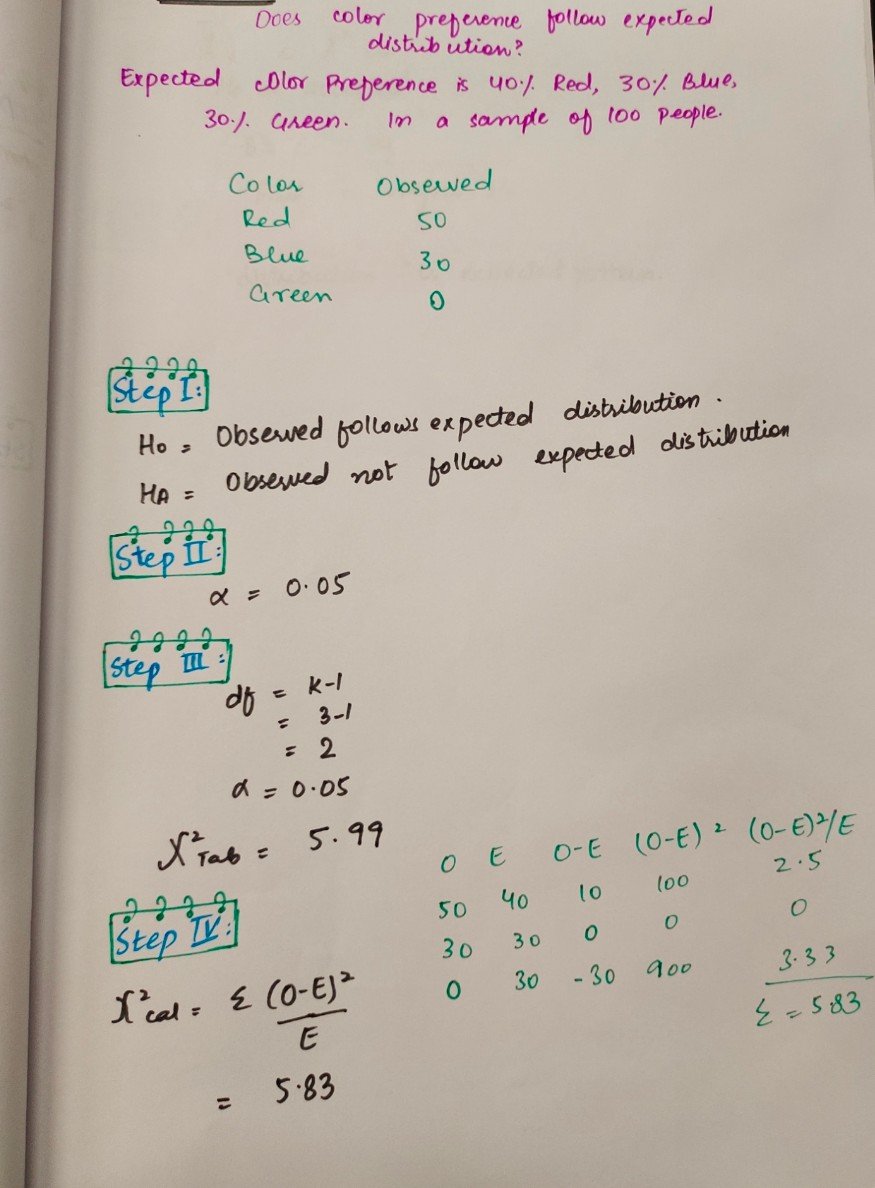 Does color preference follow expected
distribution?
Expected color Preference is 40% Red, 30% Blue,
30% Green. In a sample of 100 people.
Color Observed
Red 50
Blue 30
Green 0
Step I:
H0 = Observed follows expected distribution.
HA = Observed not follow expected distribution
Step II:
α = 0.05
Step III:
df = K-1
= 3-1
= 2
α = 0.05
X²Tab = 5.99
Step IV:
X²cal = Σ (O-E)²/E
= 5.83
O E O-E (O-E)² (O-E)²/E
50 40 10 100 2.5
30 30 0 0 0
0 30 -30 900 3.33
Σ = 5.83